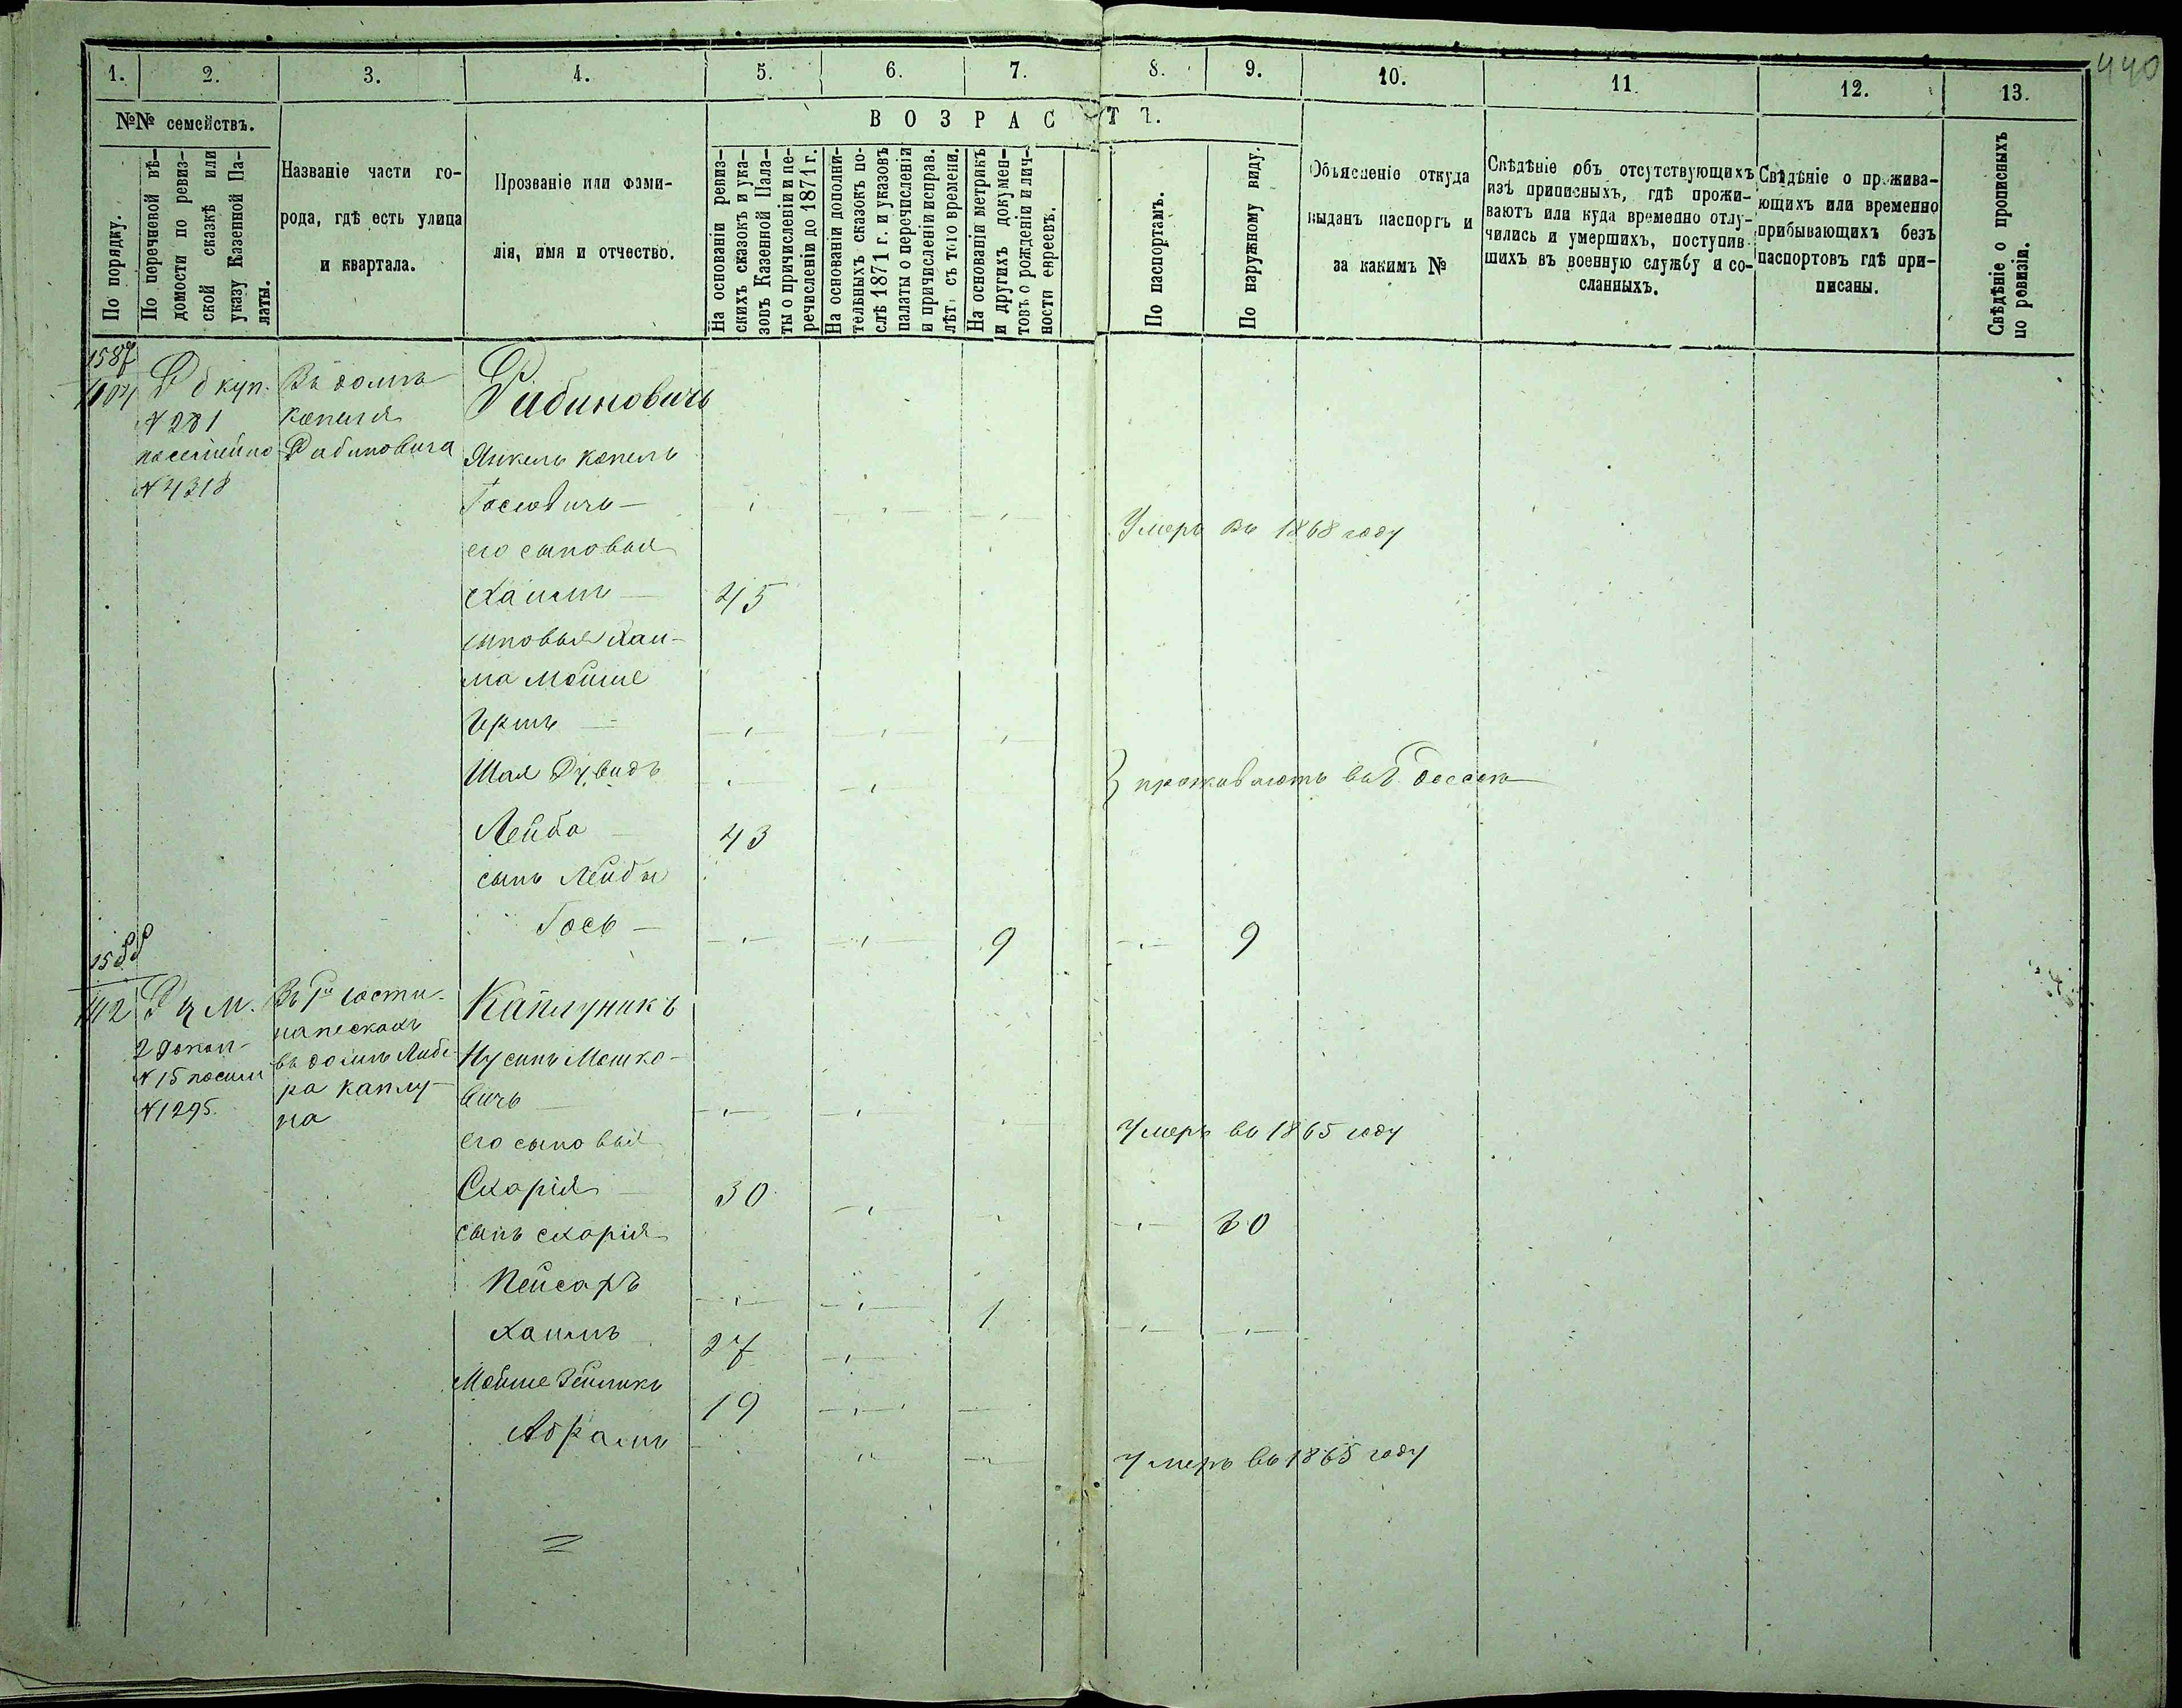 440
1. 2. 3. 4. 5. 6. 7. 8. 9. 10. 11. 12. 13.
№№ семействъ.
По порядку.
По перечневой вѣ-
домости по ревиз-
ской сказкѣ или
указу Казенной Па-
латы.
Названіе части го-
рода, гдѣ есть улица
и квартала.
Прозваніе или фами-
лія, имя и отчество.
ВОЗРАСТЪ.
На основаніи ревиз-
скихъ сказокъ и ука-
зовъ Казенной Пала-
ты о причисленіи и пе-
речисленіи до 1871 г.
На основаніи дополни-
тельныхъ сказокъ по-
слѣ 1871 г. и указовъ
палаты о перечисленіи
и причисленіи исправ.
лѣт. съ того времени.
На основаніи метрикъ
и другихъ докумен-
товъ о рожденіи и лич-
ности евреевъ.
По паспортамъ.
По наружному виду.
Объясненіе откуда
выданъ паспортъ и
за какимъ №
Свѣдѣніе объ отсутствующихъ
изъ приписныхъ, гдѣ прожи-
ваютъ или куда временно отлу-
чились и умершихъ, поступив-
шихъ въ военную службу и со-
сланныхъ.
Свѣдѣніе о прожива-
ющихъ или временно
прибывающихъ безъ
паспортовъ гдѣ при-
писаны.
Свѣдѣніе о прописныхъ
по ревизіи.
1587
куп.
№ 281
посемейно
№ 4318
Въ домѣ
Копеля
Рабиновича
Рабиновичъ
Янкель Копель
Госіовичъ —
Умеръ въ 1868 году
его сыновья
Хаимъ — 45
сыновья Хаи-
ма Мойше
Гершъ —
Шая Дувидъ
} проживаютъ въ Одессѣ
Лейба — 43
сынъ Лейбы
Гось — 9 9
1588
1112
Р Ц М.
2 допол-
№ 15 посем
№ 1295.
Въ 1й части
на пескахъ
въ домѣ Либе-
ра Каплу-
на
Каплуникъ
Нусинъ Мошко-
вичъ —
Умеръ въ 1865 году
его сыновья
Схарія — 30 30
сынъ Схарія
Пейсахъ 1
Хаимъ — 27
Мойше Зейликъ 19
Абрамъ
Умеръ въ 1865 году